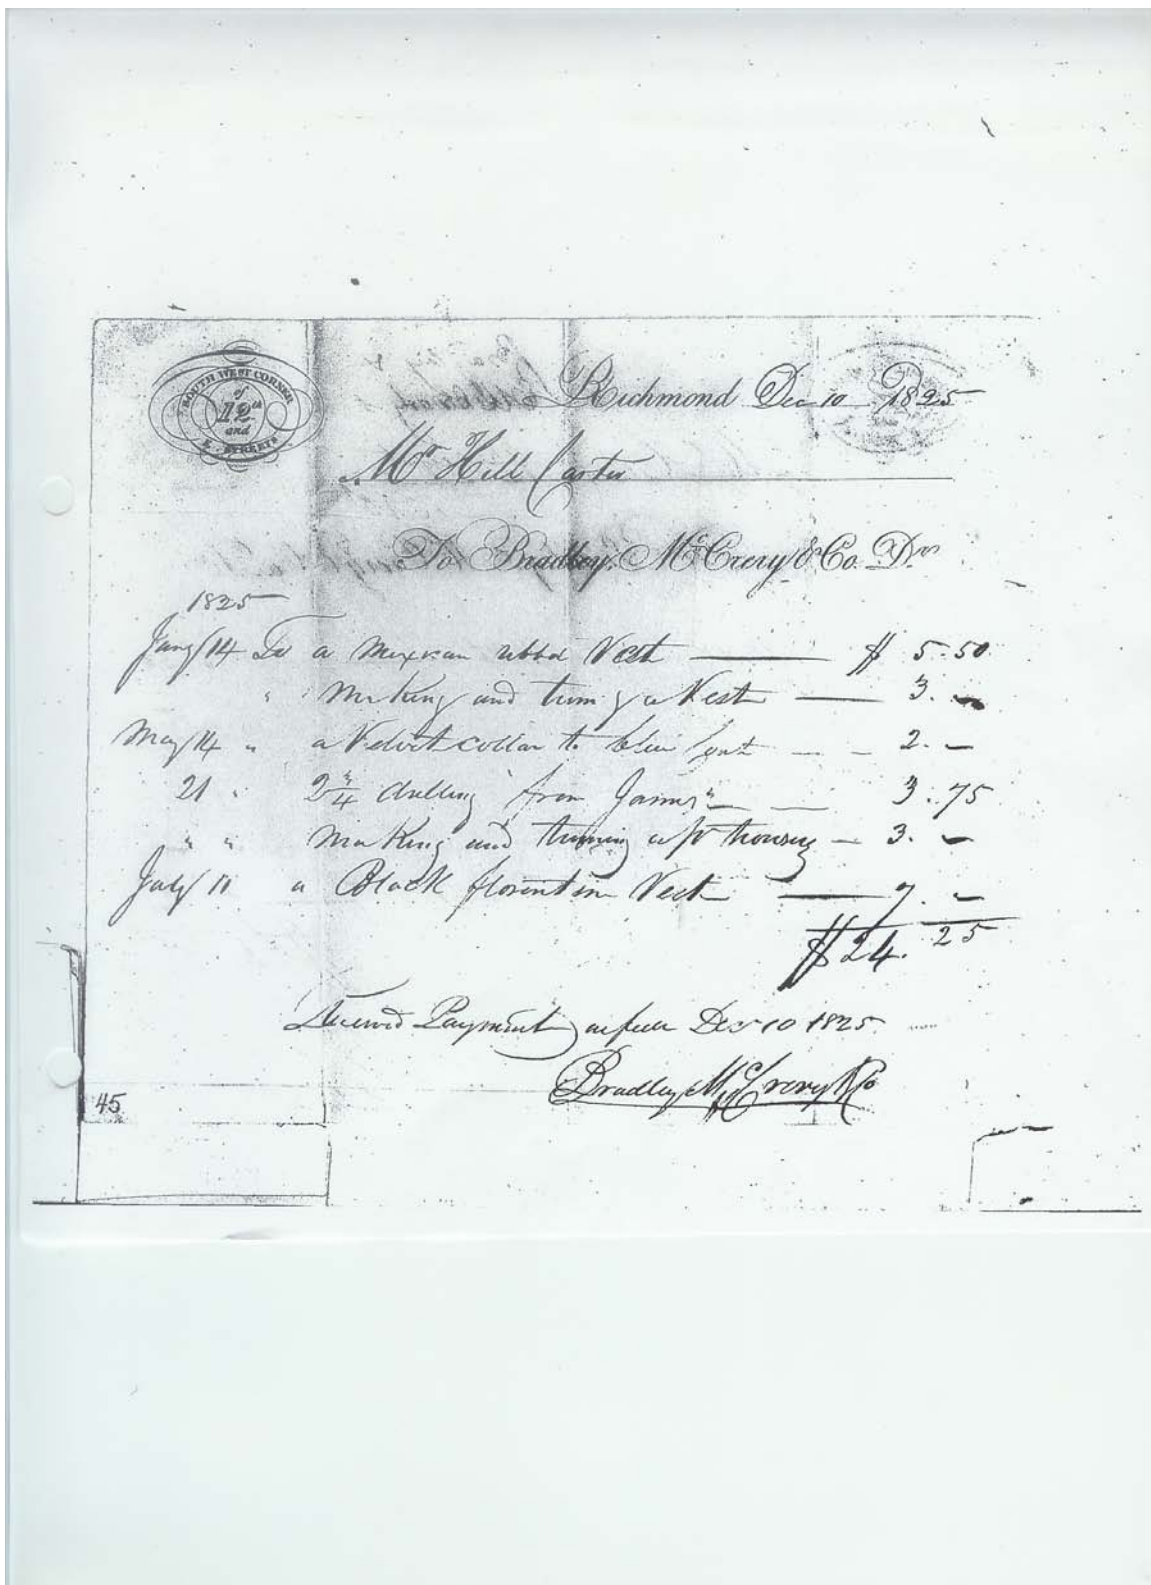 SOUTH WEST CORNER
of
12th
and
E. STREETS
Richmond Dec 10 1825
Mr Hill Carter
To Bradley, McCrery & Co. Dr
1825
Jany 14 To a Mexican ribbd Vest $ 5.50
" Making and trimg a Vest 3. –
May 14 " a Velvet collar to blue 2. –
21 " 2 3/4 drilling from James 3.75
" " Making and triming a pr trousers 3. –
July 11 a Black florentine Vest 7. –
$24.25
Received Payment in full Dec 10 1825
Bradley McCrery & Co
45